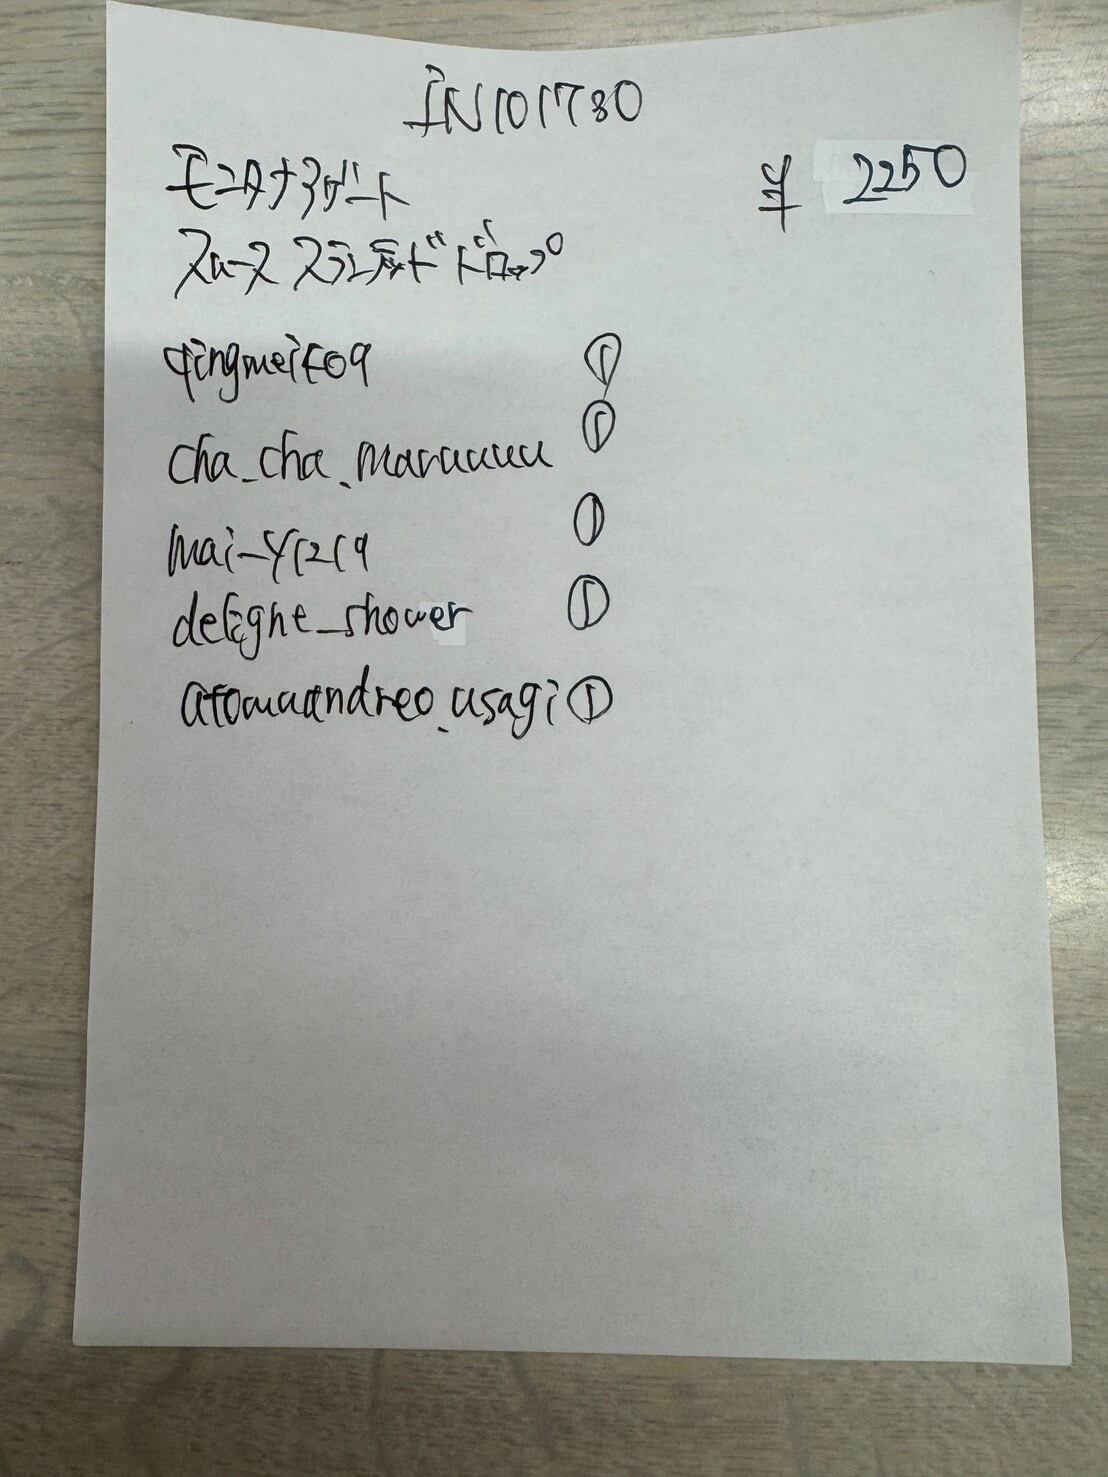 IN101780
モンタナアゲート ¥ 2250
スムース スランテッド ドロップ
qingmeiko9 ①
cha_cha.maruuuuu ①
mai_y1219 ①
delight_shower ①
atomuandreo.usagi ①